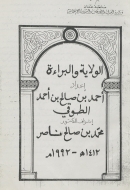 الولاية والبراءة
إعداد
أحمد بن صالح بن أحمد
الطوقي
محمد بن صالح ناصر
١٤١٢هـ - ١٩٩٢م